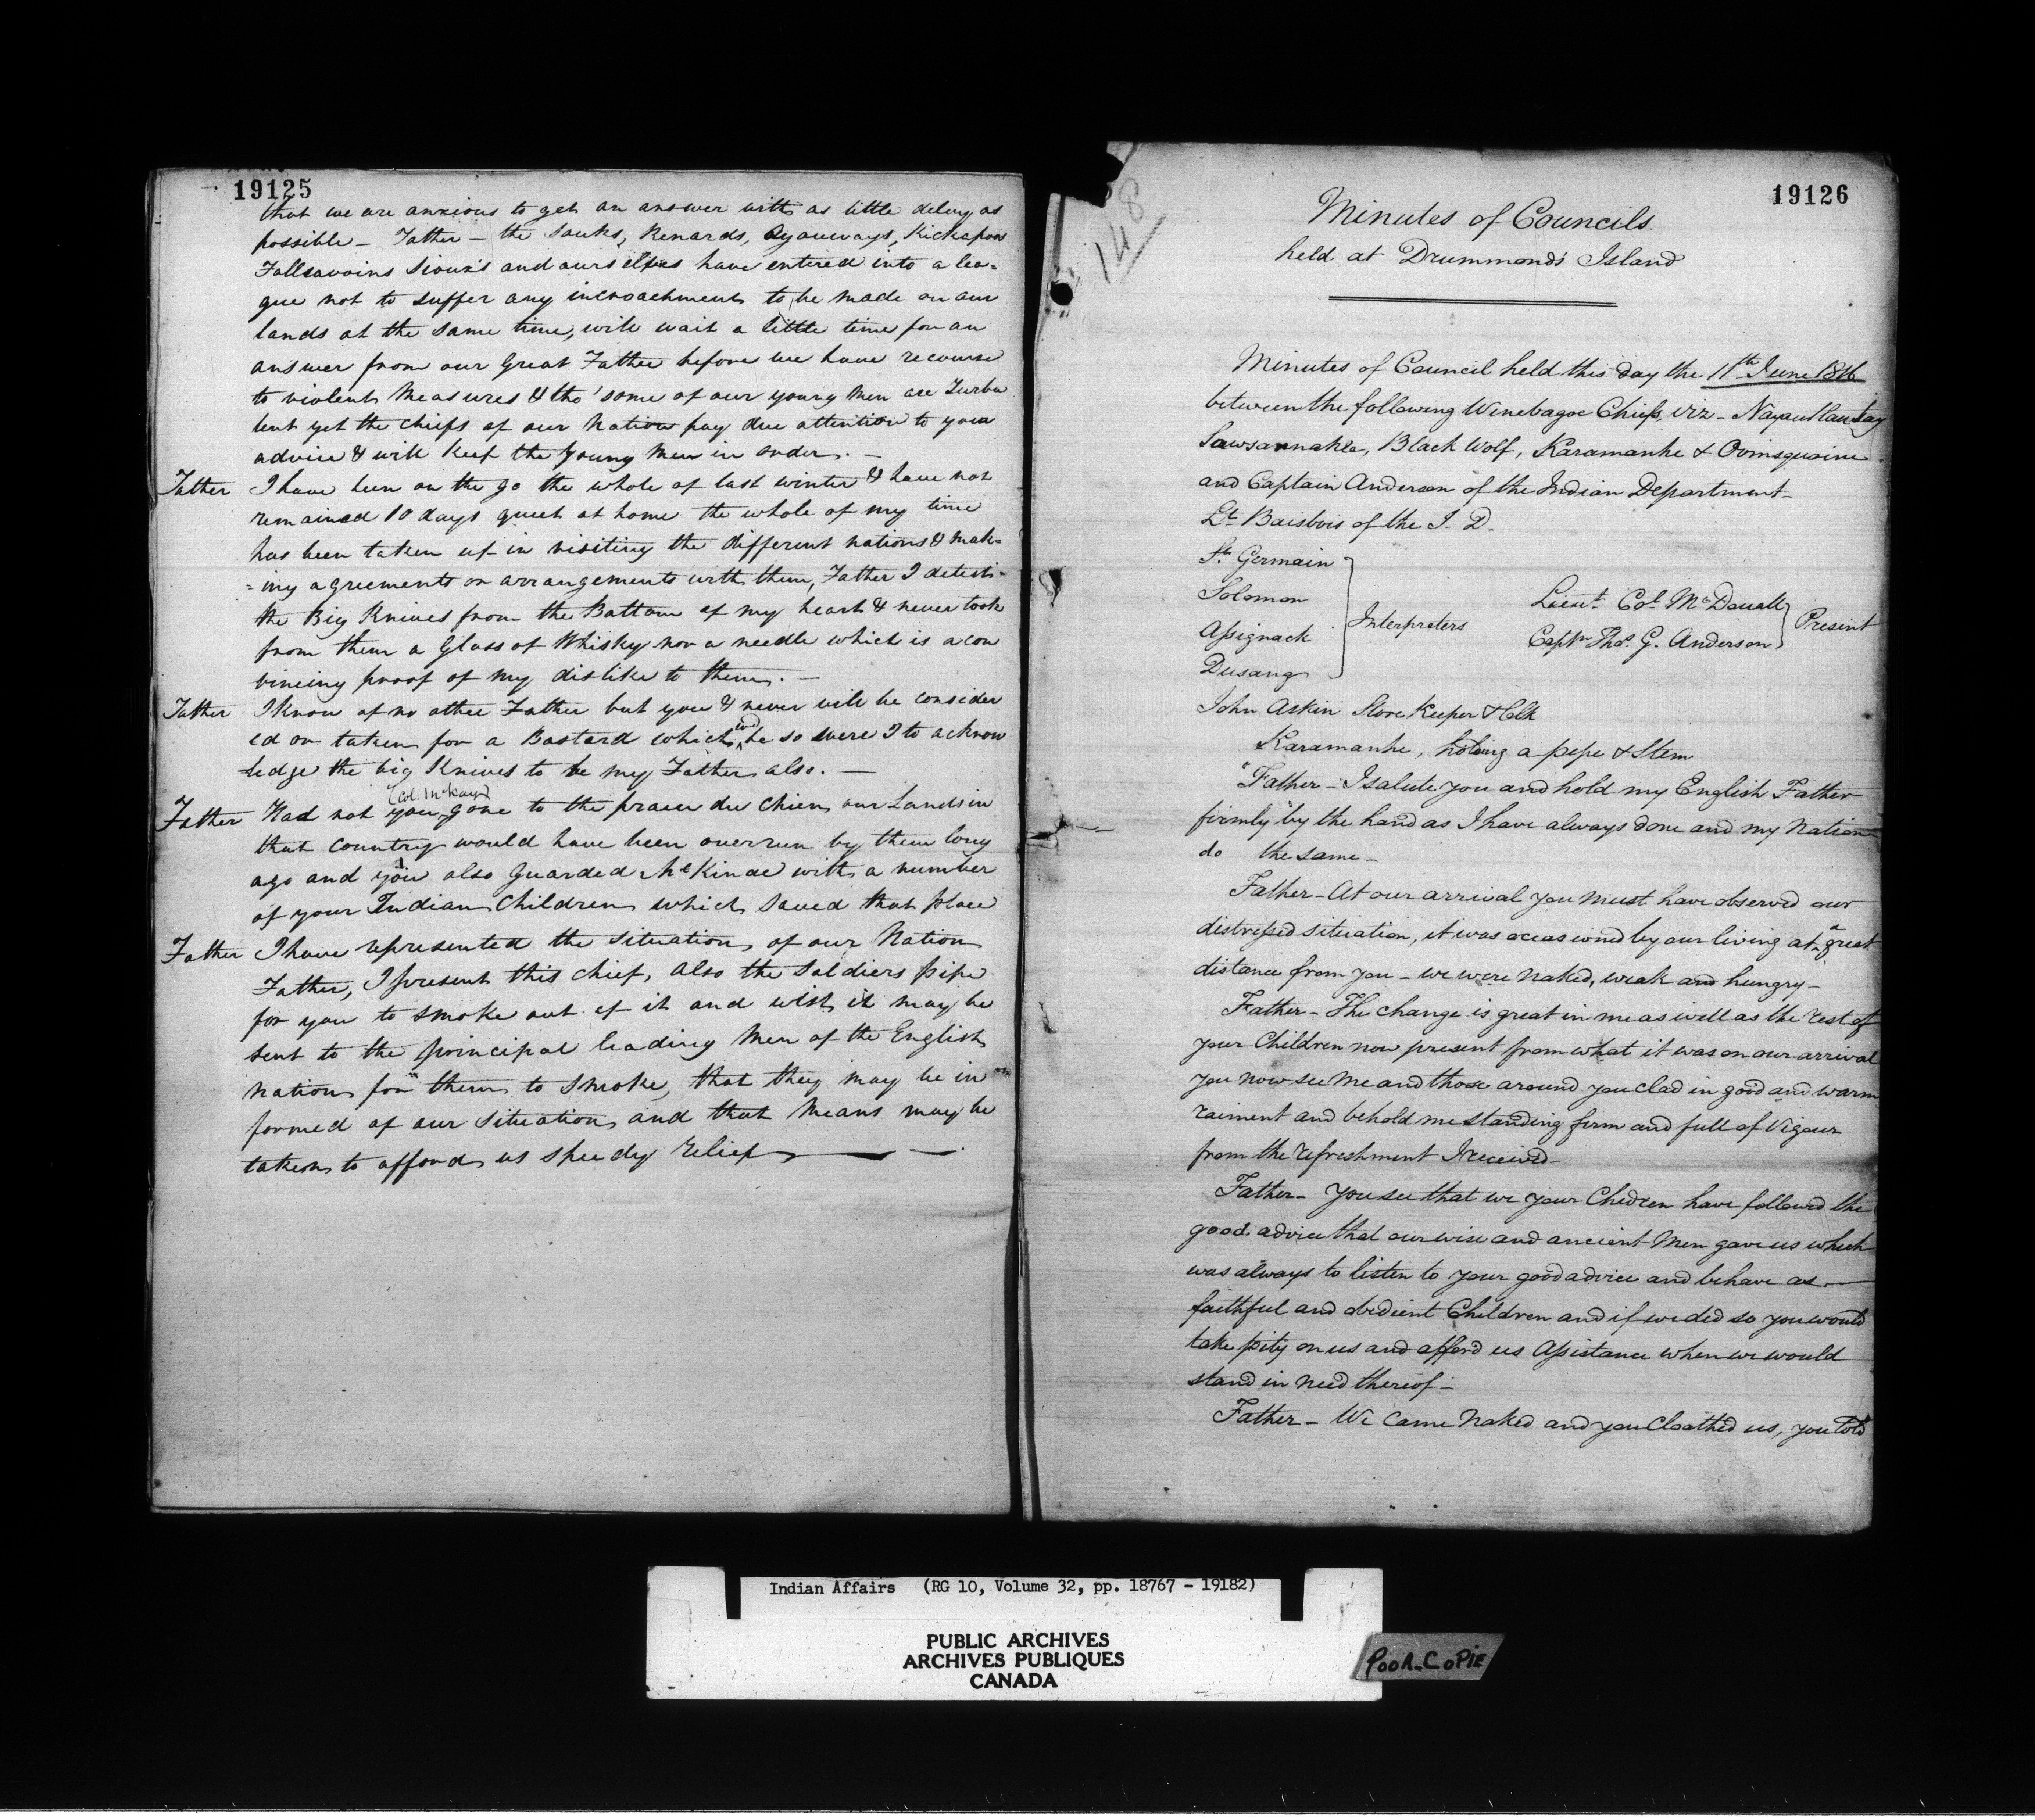 19125
that we are anxious to get an answer with as little delay as
possible - Father - the Sauks, Renards, Ayauways, Kickapoos
Fallsavoins Sioux's and ourselves have entired into a lea=
gue not to suffer any incroachments to be made on our
lands at the same time, will wait a little time for an
answer from our Great Father before we have recourse
to violent measures & tho' some of our young men are Turbu
lent yet the chiefs of our Nation pay due attention to your
advice & will keep the young men in order. -
Father I have been on the go the whole of last winter & have not
remained 10 days quiet at home the whole of my time
has been taken up in visiting the different nations & mak=
=ing agreements or arrangements with them, Father I detest
the Big Knives from the Bottom of my heart & never took
from them a Glass of Whisky nor a needle which is a con
vincing proof of my dislike to them. -
Father I know of no other Father but you & never will be consider
ed or taken for a Bastard which wd be so were I to acknow
ledge the big Knives to be my Father also. -
(Col. McKay)
Father Had not you gone to the praire du Chien our Lands in
that country would have been overrun by them long
ago and you also Guarded McKinac with a number
of your Indian Children which saved that place
Father I have represented the situation of our Nation
Father, I present this chief, also the Soldiers pipe
for you to smoke out of it and wish it may be
sent to the principal leading men of the English
nation for them to smoke, that they may be in
formed of our situation and that means may be
taken to afford us speedy relief -
19126
148
Minutes of Councils
held at Drummonds Island
Minutes of Council held this day the 11th June 1816
between the following Winebagoe Chiefs, Viz -
Sawsannahka, Black Wolf, Karamanhe &
and Captain Anderson of the Indian Department -
Lt Baisbois of the I. D.
St Germain
Solomon
Assignack
Dusang
Interpreters
Lieut. Col. McDouall
Captn Thos. G. Anderson
Present
John Askin Store Keeper & Clk
Karamanhe, holding a pipe & Stem
"Father - I salute you and hold my English Father
firmly by the hand as I have always done and my Nation
do the same -
Father - At our arrival you must have observed our
distressed situation, it was occasioned by our living at a great
distance from you - we were naked, weak and hungry -
Father - The change is great in me as well as the rest of
your Children now present from what it was on our arrival
you now see me and those around you clad in good and warm
raiment and behold me standing firm and full of Vigour
from the refreshment I received -
Father - You see that we your Children have followed the
good advice that our wise and ancient Men gave us which
was always to listen to your good advice and behave as -
faithful and obedient Children and if we did so you would
take pity on us and afford us Assistance when we would
stand in need thereof -
Father - We came naked and you Cloathed us, you told
Indian Affairs (RG 10, Volume 32, pp. 18767 - 19182)
PUBLIC ARCHIVES
ARCHIVES PUBLIQUES
CANADA
POOR COPIE